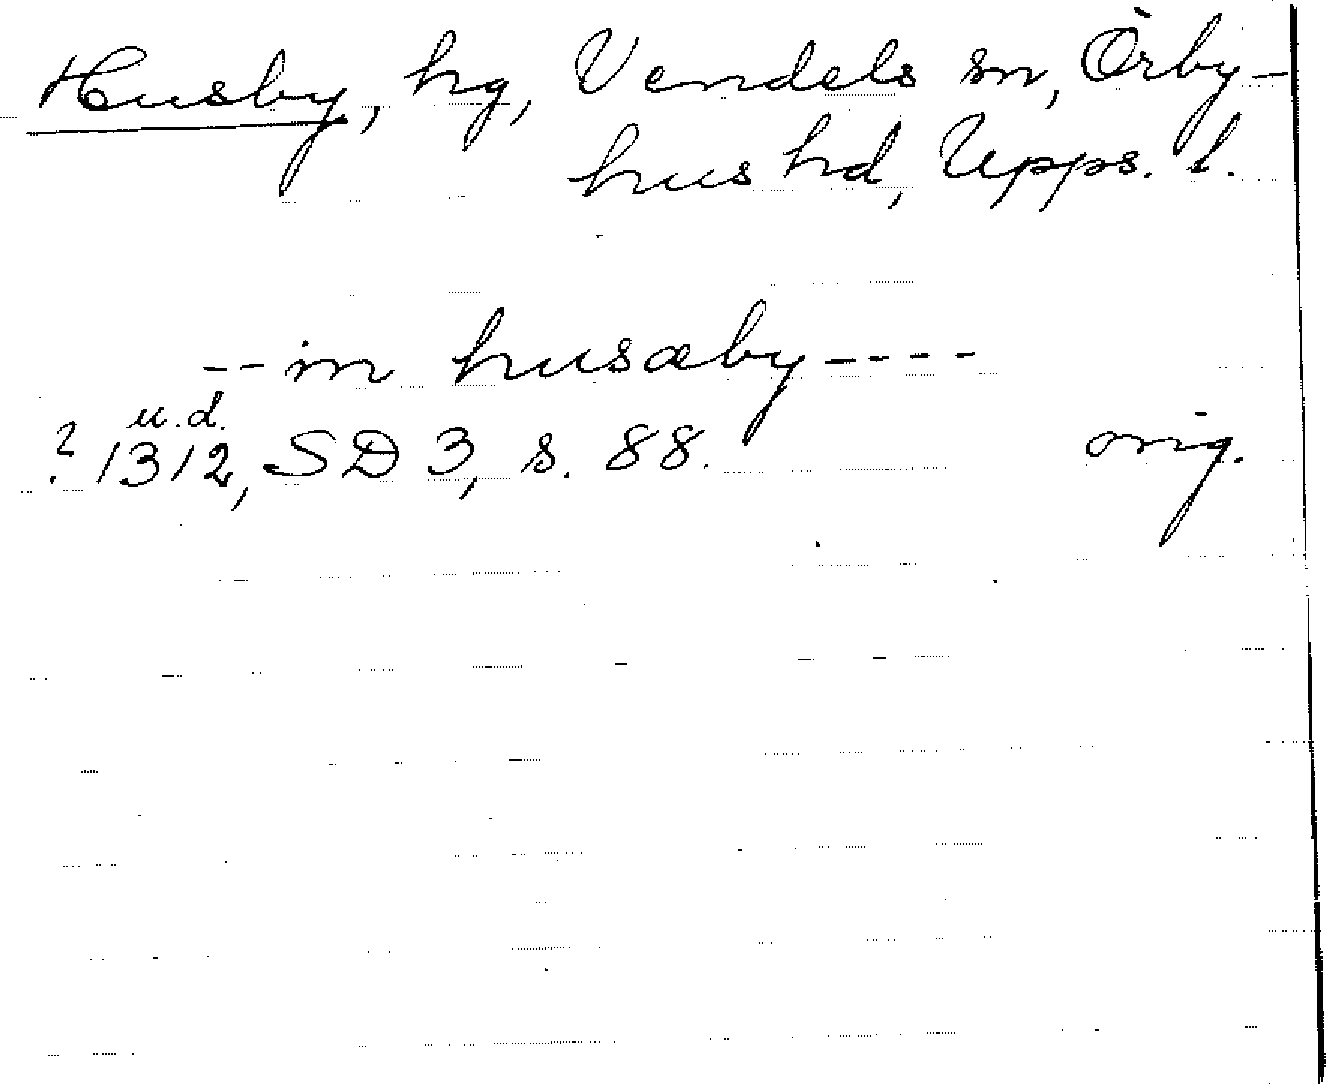 Husby, hg, Vendels sn, Örby-
hus hd, Upps. l.
--in husæby----
u.d.
? 1312, SD 3, s. 88. orig.